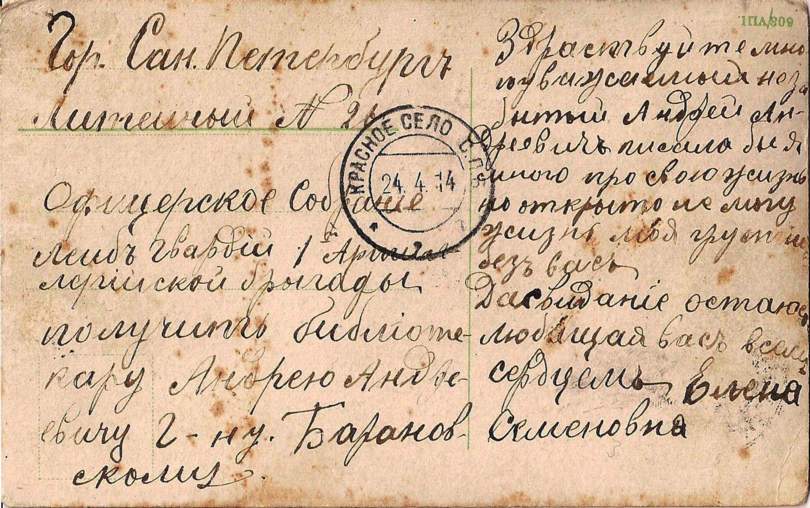 Гор. Сан. Петербургъ
литейный N 2
Офицерское Собрание
Лейбъ Гвардій 1 Артил
лерійской бригады
получить библіоте-
кару Андрею Андре-
евичу Г-ну. Баранов-
скому.
КРАСНОЕ СЕЛО С.П.Б
24.4.14
1ПЛ/309
Здраствуйте мно
гоуважаемый неза
бытый Андрей Ан
дреевичъ писала бы я
много про свою жизнь
но открыто не могу
жизнь моя
безъ васъ
Дасвидание остаюс
любящая васъ всемъ
сердцемъ Елена
Семеновна